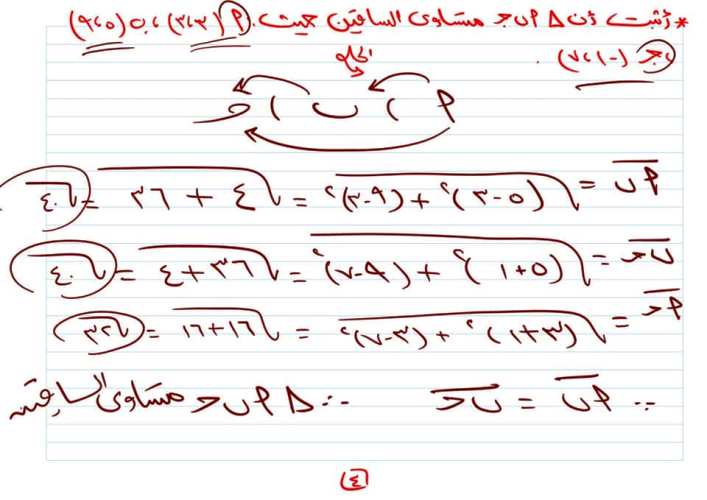 * أثبت أن Δ أ ب جـ متساوى الساقين حيث أ (٣،٣) ، ب (٥،٩)
، جـ (-١،٧) .
الحل
أ ، ب ، جـ
أ ب = √(٥-٣)² + (٩-٣)² = √٤ + ٣٦ = √٤٠
ب جـ = √(٥+١)² + (٩-٧)² = √٣٦+٤ = √٤٠
أ جـ = √(٣+١)² + (٣-٧)² = √١٦+١٦ = √٣٢
∵ أ ب = ب جـ ∴ Δ أ ب جـ متساوى الساقين
٤